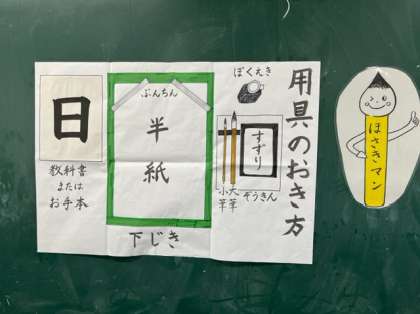 用具のおき方
ぼくえき
すずり
大筆
小筆
ぞうきん
ぶんちん
半紙
下じき
日
教科書
または
お手本
ほさきマン